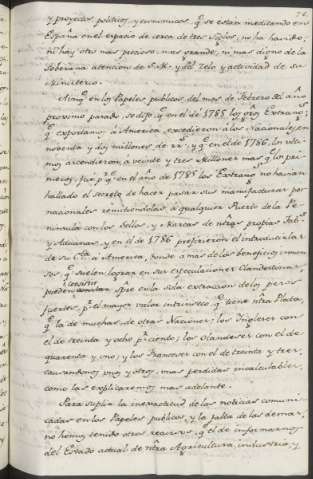 y proyectos politicos, y economicos q.e se estan meditando en
España en el espacio de cerca de tres Siglos, no ha havido,
ni hay otro mas precioso, mas grande, ni mas digno de la
Soberana atencion de S.M. y del zelo y actividad de su
Ministerio.
Aunq.e en los Papeles publicos del mes de Febrero del año
proximo pasado, se dijo q.e en el de 1785 los gros Extrang.s
q.e exportaron a America, excedieron a los Nacionales, en
noventa y dos millones de r.s v.n y q.e en el de 1786, los ulti-
mos ascendieron a veinte y tres Millones mas q.e los pri-
meros; fue p.r q.e en el año de 1785 los Extrang.s no havian
hallado el secreto de hacer pasar sus manufacturas por
nacionales remitiendolas a qualquiera Puerto de la Pe-
ninsula con los Sellos, y Marcas de ntras propias Fab.s
y Aduanas, y en el de 1786 prefirieron el introducirlas
de su c.ta a America, donde a mas de los beneficios inmen-
sos, q.e suelen lograr en sus especulaciones Clandestinas,
q.e es la sola extraccion de los pesos
fuertes, p.r el mayor valor intrinseco q.e tiene ntra Plata,
q.e la de muchas de otras Naciones; los Ingleses con
el de treinta y ocho p.r ciento; los Olandeses con el de
quarenta y uno; y los Franceses con el de treinta y tres,
causandonos unos y otros, mas perdidas incalculables,
como las explicaremos mas adelante.
Para suplir la inexactitud de las noticias comuni-
cadas en los Papeles publicos, y la falta de las demas,
no hemos tenido otro recurso, q.e el de informarnos
del Estado actual de ntra Agricultura, industria, y